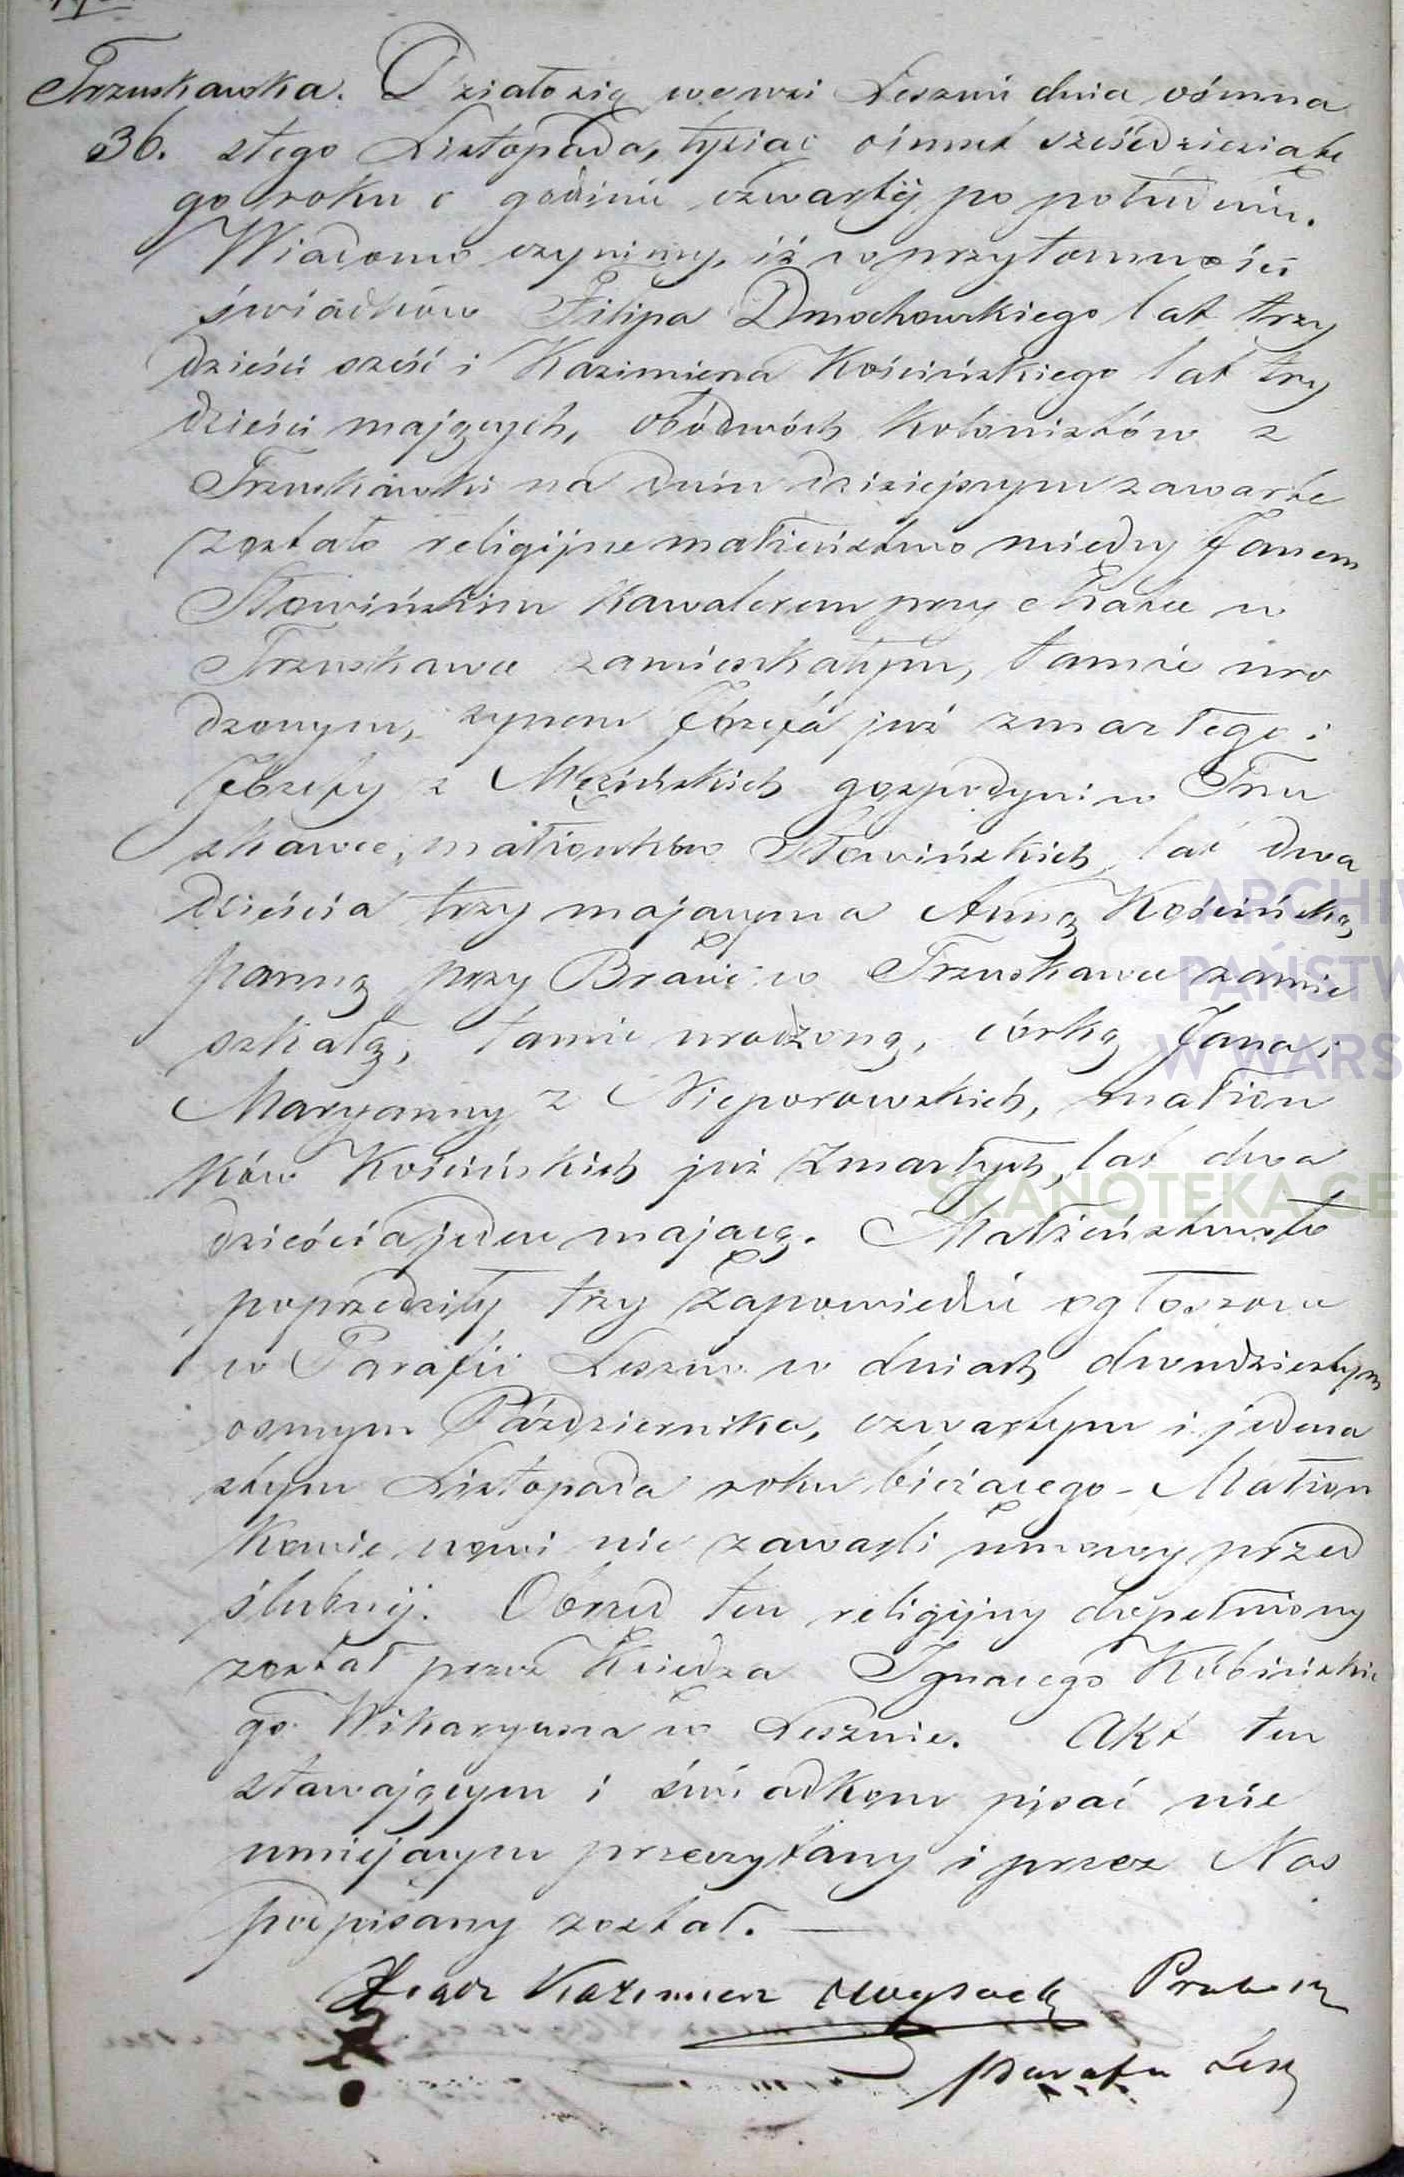 Trzuskawka. Działo się we wsi Lesznie dnia ośmna
36. stego Listopada, tysiąc ośmset sześćdziesiąte
go roku o godzinie czwartej po południu.
Wiadomo czynimy, iż w przytomności
świadków Filipa Dmochowskiego lat trzy
dzieści sześć i Kazimierza Kościńskiego lat trzy
dzieści mających, obódwóch kolonistów z
Trzuskawki na dniu dzisiejszym zawarte
zostało religijne małżeństwo między Janem
Słowińskim Kawalerem przy matce w
Trzuskawce zamieszkałym, tamże uro
dzonym, synem Józefa już zmarłego i
Józefy z gospodyni w Tru
skawce, małżonków Słowińskich, lat dwa
dzieścia trzy mającym a Anną Kościńską,
panną przy Bracie w Trzuskawce zamie
szkałą, tamże urodzoną, córką Jana i
Maryanny z Nieporowskich, małżon
ków Kościńskich już zmarłych, lat dwa
dzieścia jeden mającą. Małżeństwo to
poprzedziły trzy zapowiedzie ogłoszone
w Parafii Leszno w dniach dwudziestym
osmym Października, czwartym i jedena
stym Listopada roku bieżącego - Małżon
kowie nowi nie zawarli umowy przed
ślubnéj. Obrzęd ten religijny dopełniony
został przez Księdza Ignacego Kubińskie
go Wikaryusza w Lesznie. Akt ten
stawającym i świadkom pisać nie
umiejącym przeczytany i przez Nas
podpisany został. —
Xiądz Kazimierz Proboszcz
Parafii Lesz
ARCHIW
PAŃSTW
W WARS
SKANOTEKA GE